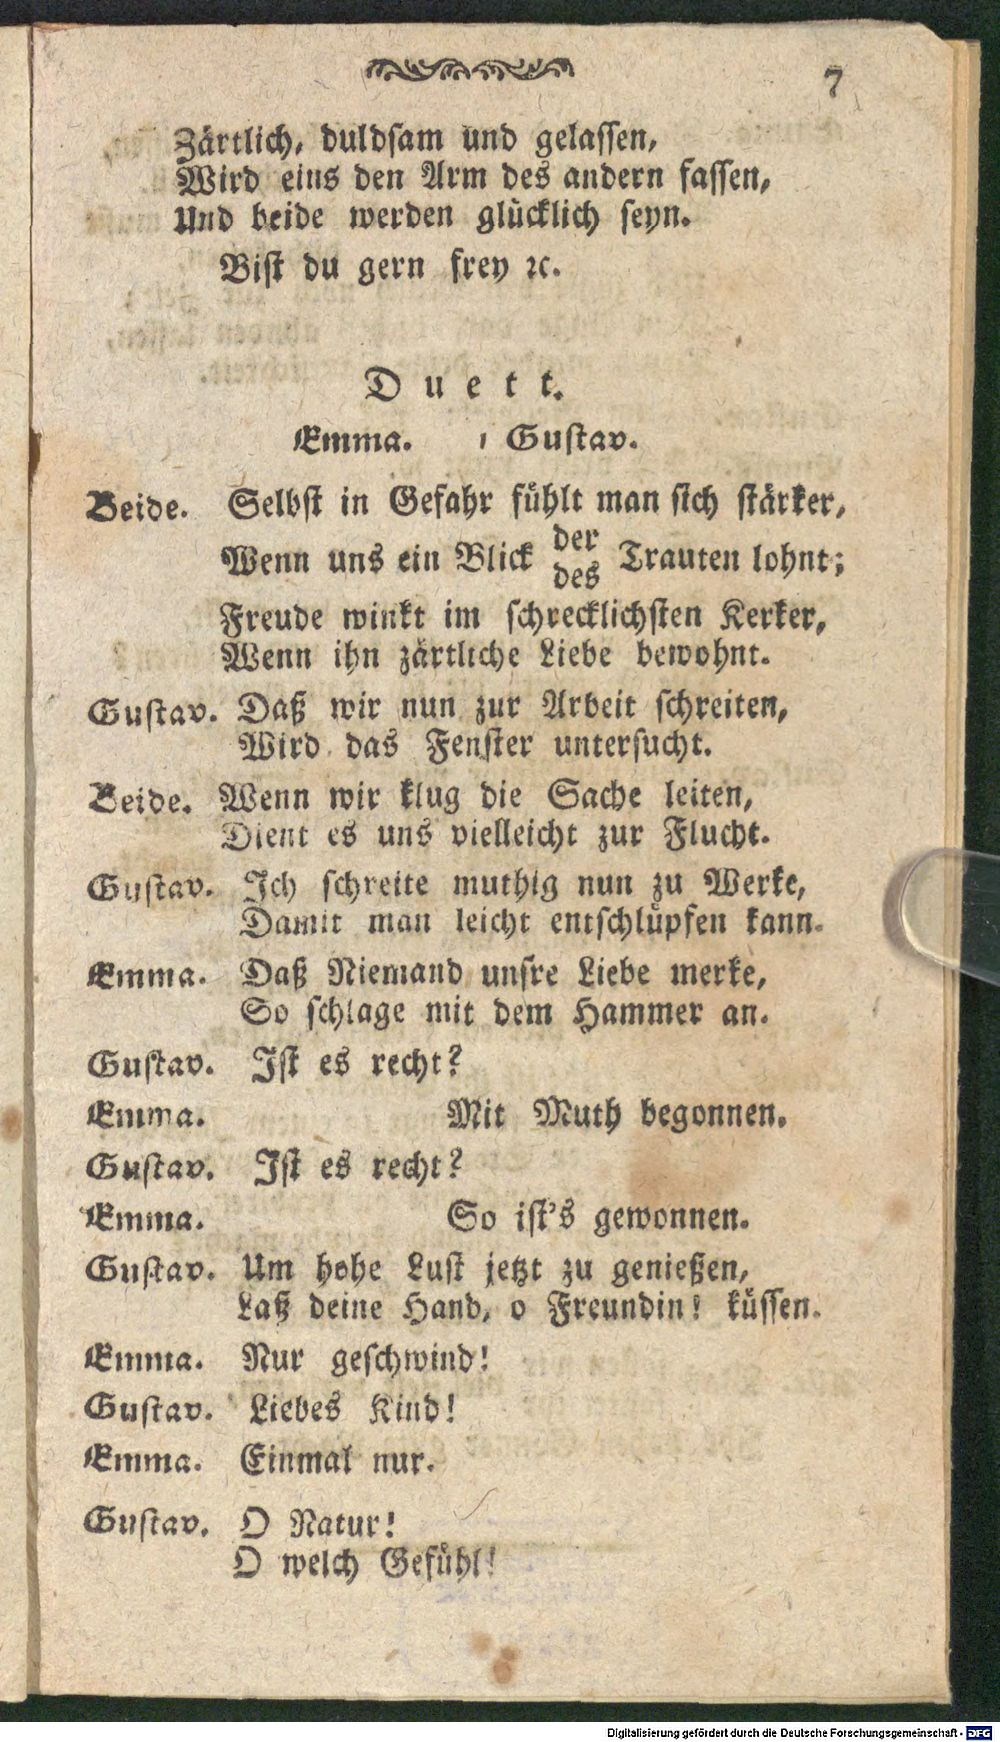 7
Zärtlich, duldsam und gelassen,
Wird eins den Arm des andern fassen,
Und beide werden glücklich seyn.
Bist du gern frey ꝛc.
Duett.
Emma. Gustav.
Beide. Selbst in Gefahr fühlt man sich stärker,
Wenn uns ein Blick der des Trauten lohnt;
Freude winkt im schrecklichsten Kerker,
Wenn ihn zärtliche Liebe bewohnt.
Gustav. Daß wir nun zur Arbeit schreiten,
Wird das Fenster untersucht.
Beide. Wenn wir klug die Sache leiten,
Dient es uns vielleicht zur Flucht.
Gustav. Ich schreite muthig nun zu Werke,
Damit man leicht entschlüpfen kann.
Emma. Daß Niemand unsre Liebe merke,
So schlage mit dem Hammer an.
Gustav. Ist es recht?
Emma. Mit Muth begonnen.
Gustav. Ist es recht?
Emma. So ist's gewonnen.
Gustav. Um hohe Lust jetzt zu genießen,
Laß deine Hand, o Freundin! küssen.
Emma. Nur geschwind!
Gustav. Liebes Kind!
Emma. Einmal nur.
Gustav. O Natur!
O welch Gefühl!
Digitalisierung gefördert durch die Deutsche Forschungsgemeinschaft - DFG